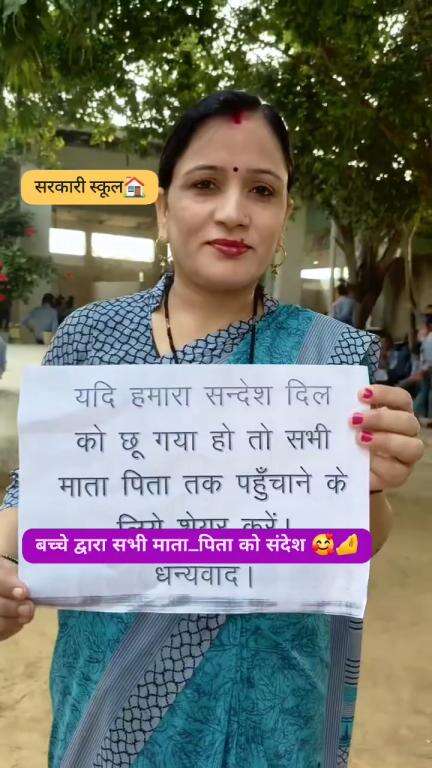 सरकारी स्कूल🏠
यदि हमारा सन्देश दिल
को छू गया हो तो सभी
माता पिता तक पहुँचाने के
लिये शेयर करें।
बच्चे द्वारा सभी माता_पिता को संदेश 🥰🤌
धन्यवाद।